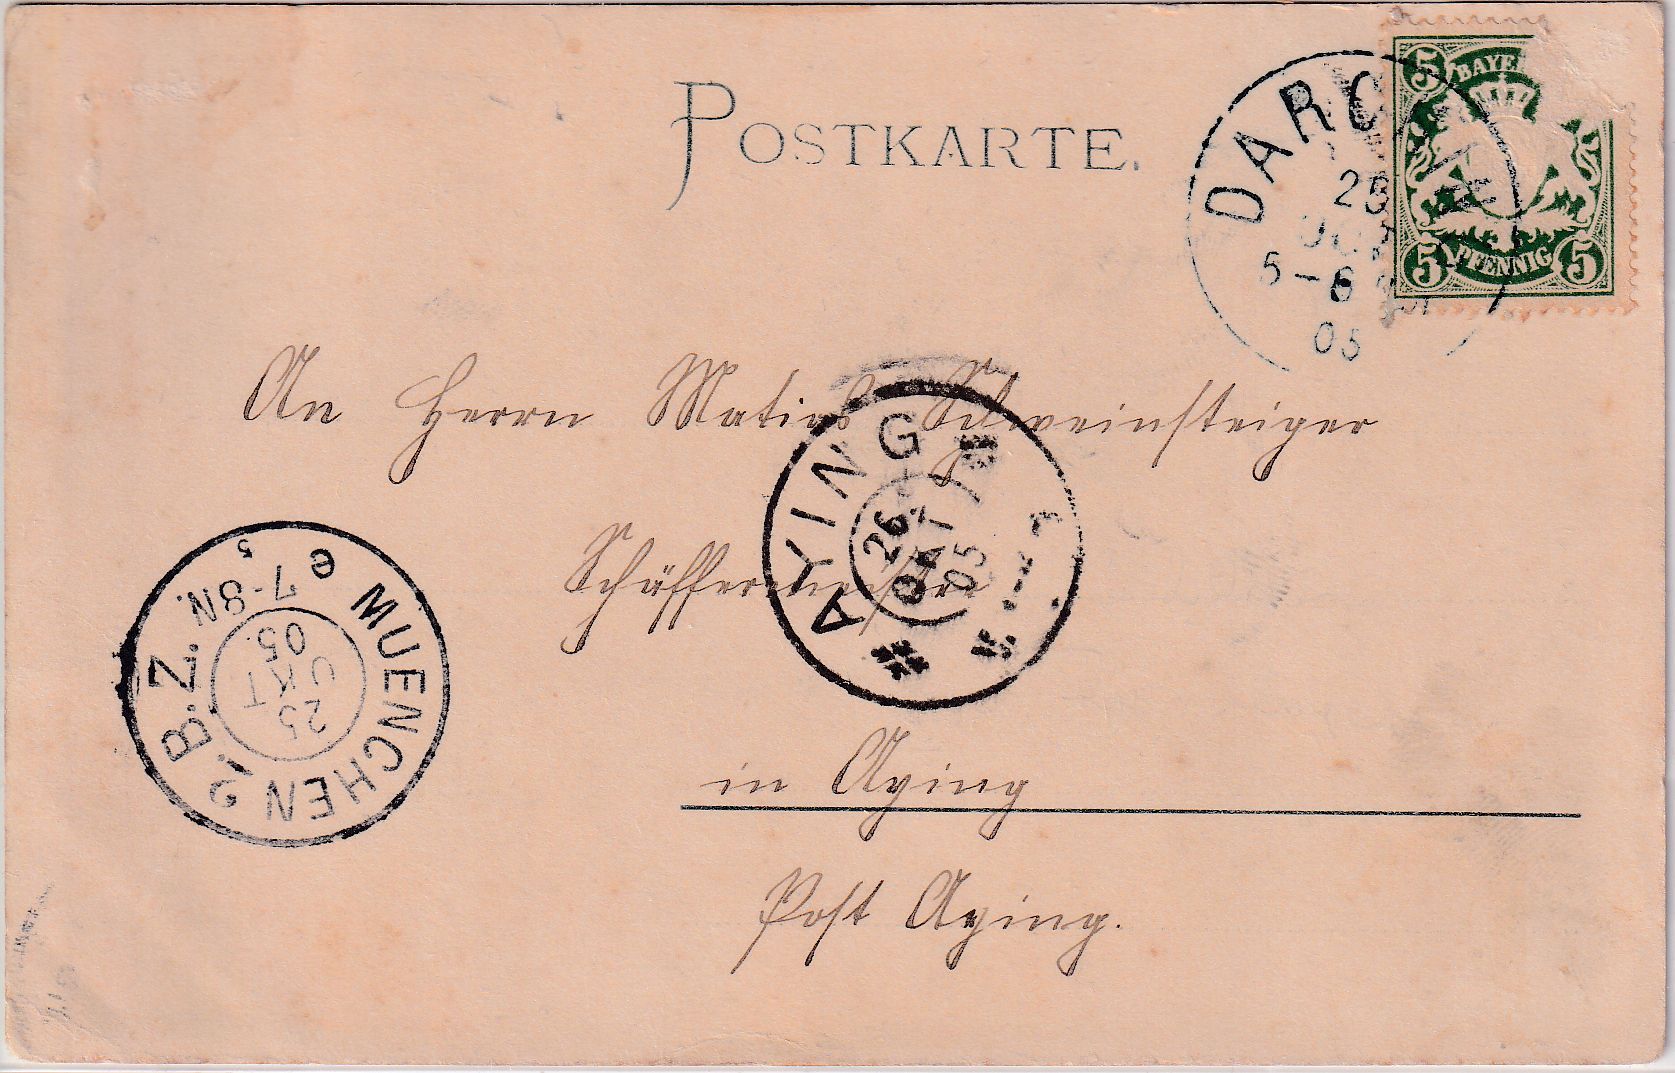 POSTKARTE.
DARC
25
5-6
05
5 BAYE
5 PFENNIG 5
An Herrn Matias Schweinsteiger
AYING
26.
OKT
05
MUENCHEN 2 B.Z.
7-8 N.
25
OKT
05
in Aying
Post Aying.